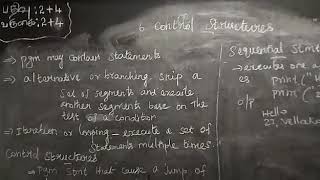 பதிவு : 2+4
வருகை : 2+4
6 Control Structures
→ pgm may contain statements
→ alternative or branching skip a
set of segments and execute
another segments base on the
test of a condition
→ Iteration or looping - execute a set of
Statements multiple times.
Control Structures
→ Pgm stmt that cause a jump of
Sequential Stmt
→ executes one a
eg print ("H
print (
o/p
Hello
27, Vellala